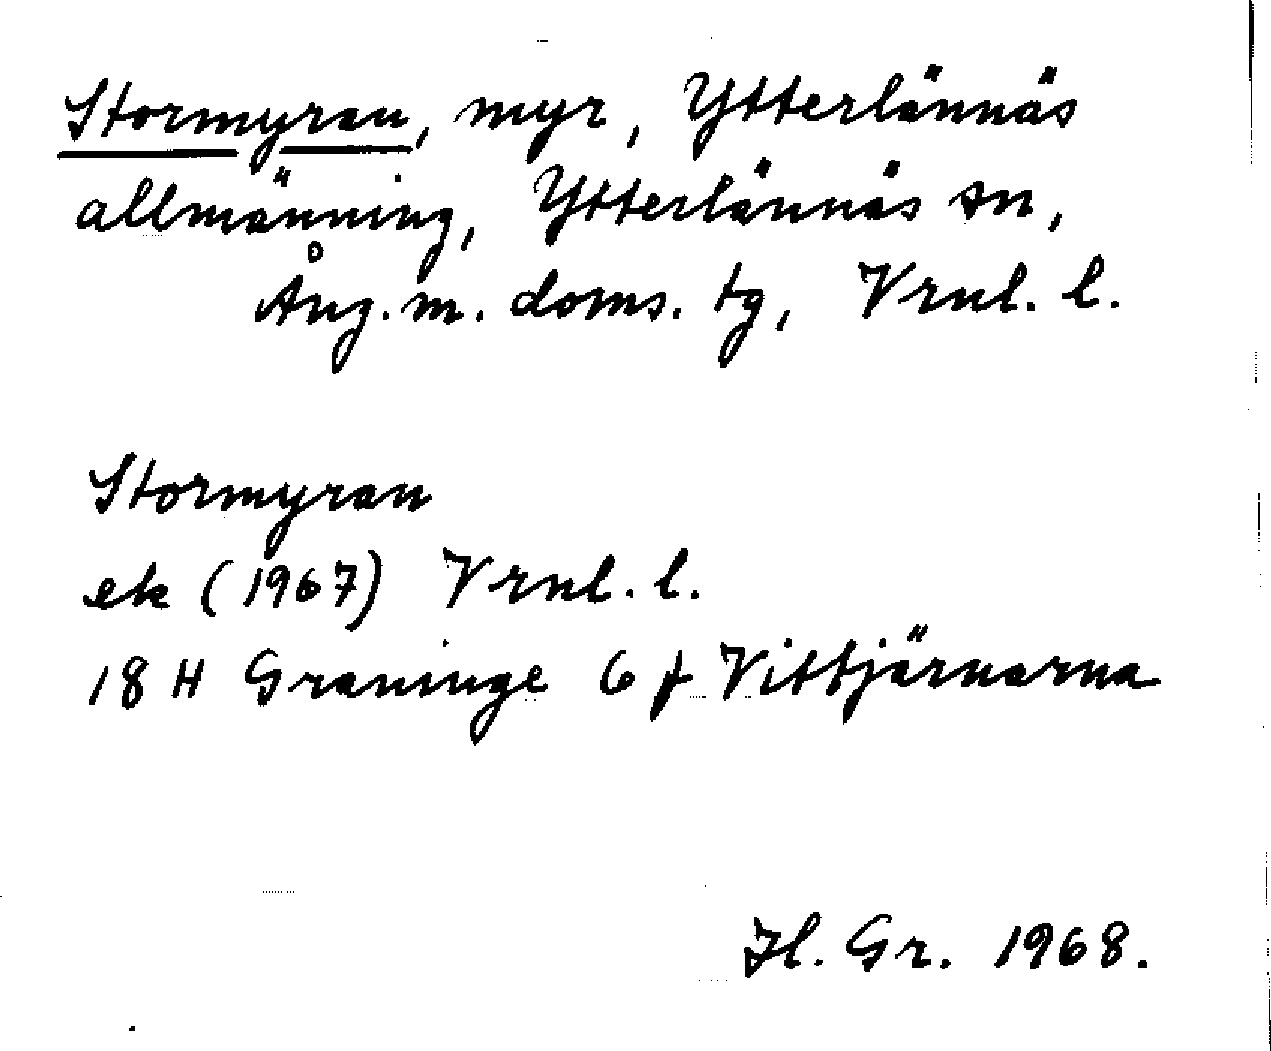 Stormyran, myr, Ytterlännäs
allmänning, Ytterlännäs sn,
Ång. m. doms. tg, Vrnl. l.
Stormyran
ek (1967) Vrnl. l.
18 H Graninge 6 f Vittjärnarna
Hl. Gr. 1968.